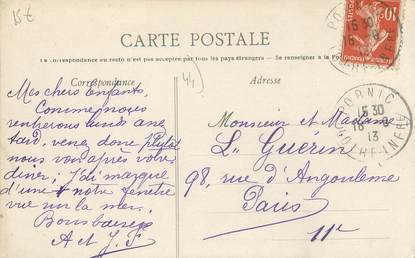 15€
CARTE POSTALE
La correspondance au recto n'est pas acceptée par tous les pays étrangers. — Se renseigner à la Poste
Correspondance
Adresse
44
Mes chers Enfants,
Comme nous
rentrerons lundi
tard, venez donc plutôt
nous voir après votre
diner; J'ai marqué
d'une notre fenêtre
vue sur la mer,
A et J. F
Monsieur et Madame
L. Guérin
98, rue d'Angoulême
Paris
11e
10
PORNIC
15 30
18 -8
13
LOIRE INFRE